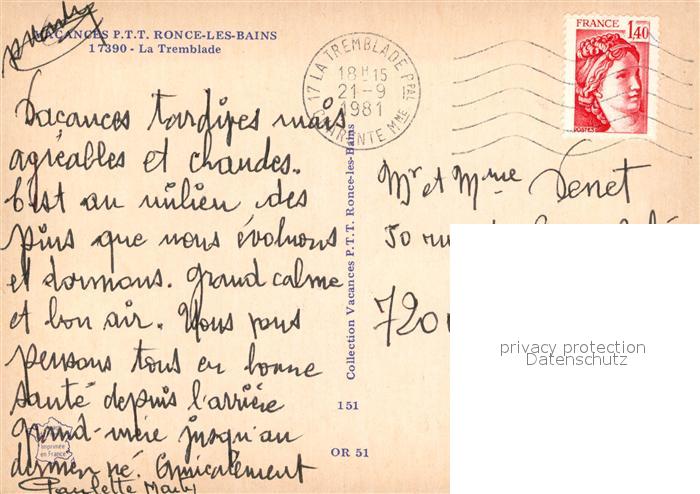 VACANCES P.T.T. RONCE-LES-BAINS
17390 - La Tremblade
17 LA TREMBLADE PPAL
18H15
21-9
1981
CHARENTE MME
FRANCE
1,40
POSTES
Vacances tardives mais
agréables et chaudes.
C'est au milieu des
pins que nous évoluons
et dormons. Grand calme
et bon air. Vous vous
pensons tous en bonne
santé depuis l'arrière
grand-mère jusqu'au
dernier né. Amicalement
Paulette
Mr et Mme Denet
50 rue
720
Collection Vacances P.T.T. Ronce-les-Bains
151
OR 51
Imprimée
en France
privacy protection
Datenschutz